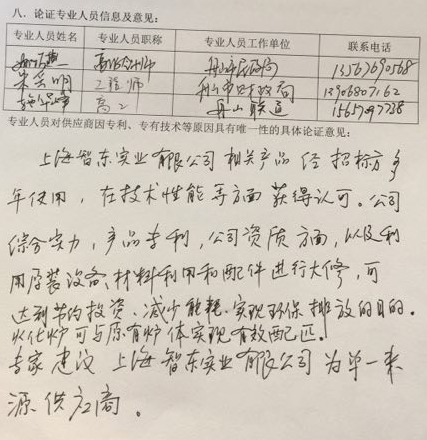 八、论证专业人员信息及意见：
专业人员姓名 专业人员职称 专业人员工作单位 联系电话
舟山市民政局 13567690568
工程师 舟山市财政局 13906807162
高工 舟山联通 15657097738
专业人员对供应商因专利、专有技术等原因具有唯一性的具体论证意见：
上海智东实业有限公司相关产品经招标方多
年使用，在技术性能等方面获得认可。公司
综合实力，产品专利，公司资质方面，以及利
用原装设备、材料利用和配件进行大修，可
达到节约投资、减少能耗、实现环保排放的目的。
火化炉可与原有炉体实现有效配匹。
专家建议上海智东实业有限公司为单一来
源供应商。